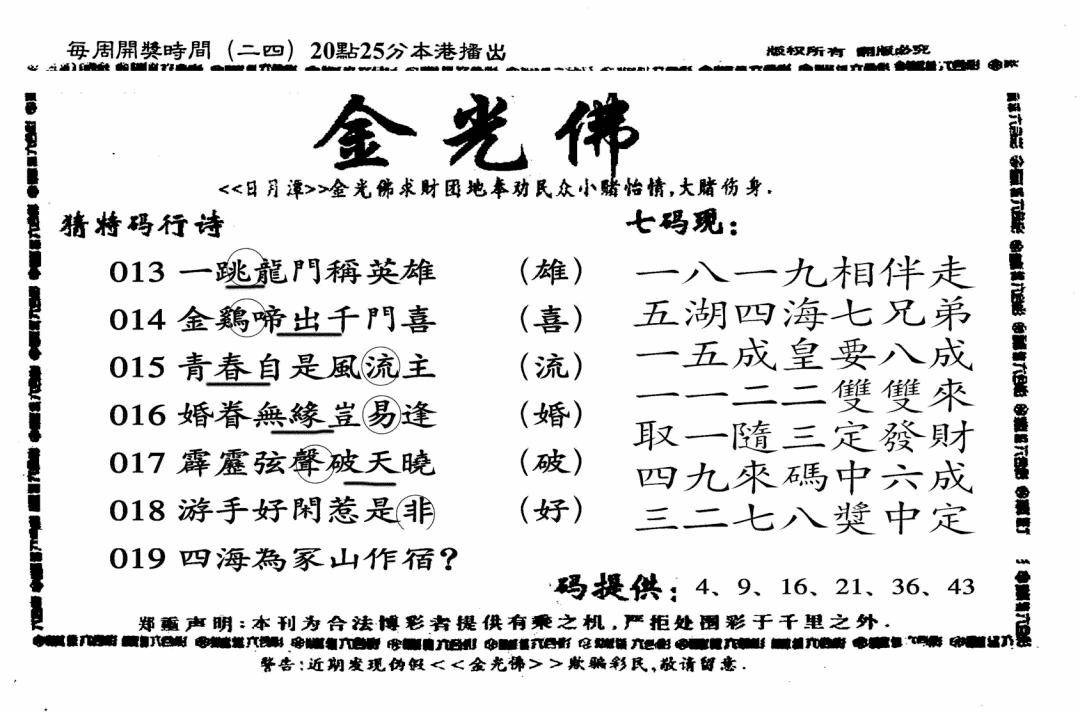 每周開獎時間（二四）20點25分本港播出
版权所有 翻版必究
金光佛
<<日月潭>>金光佛求财团地奉劝民众小赌怡情,大赌伤身.
猜特码行诗
013 一跳龍門稱英雄 （雄）
014 金鷄啼出千門喜 （喜）
015 青春自是風流主 （流）
016 婚眷無緣豈易逢 （婚）
017 霹靂弦聲破天曉 （破）
018 游手好閑惹是非 （好）
019 四海為冢山作宿?
七码现：
一八一九相伴走
五湖四海七兄弟
一五成皇要八成
一一二二雙雙來
取一隨三定發財
四九來碼中六成
三二七八獎中定
码提供：4、9、16、21、36、43
郑重声明:本刊为合法博彩者提供有乘之机,严拒处图彩于千里之外.
警告:近期发现伪假<<金光佛>>欺骗彩民,敬请留意.